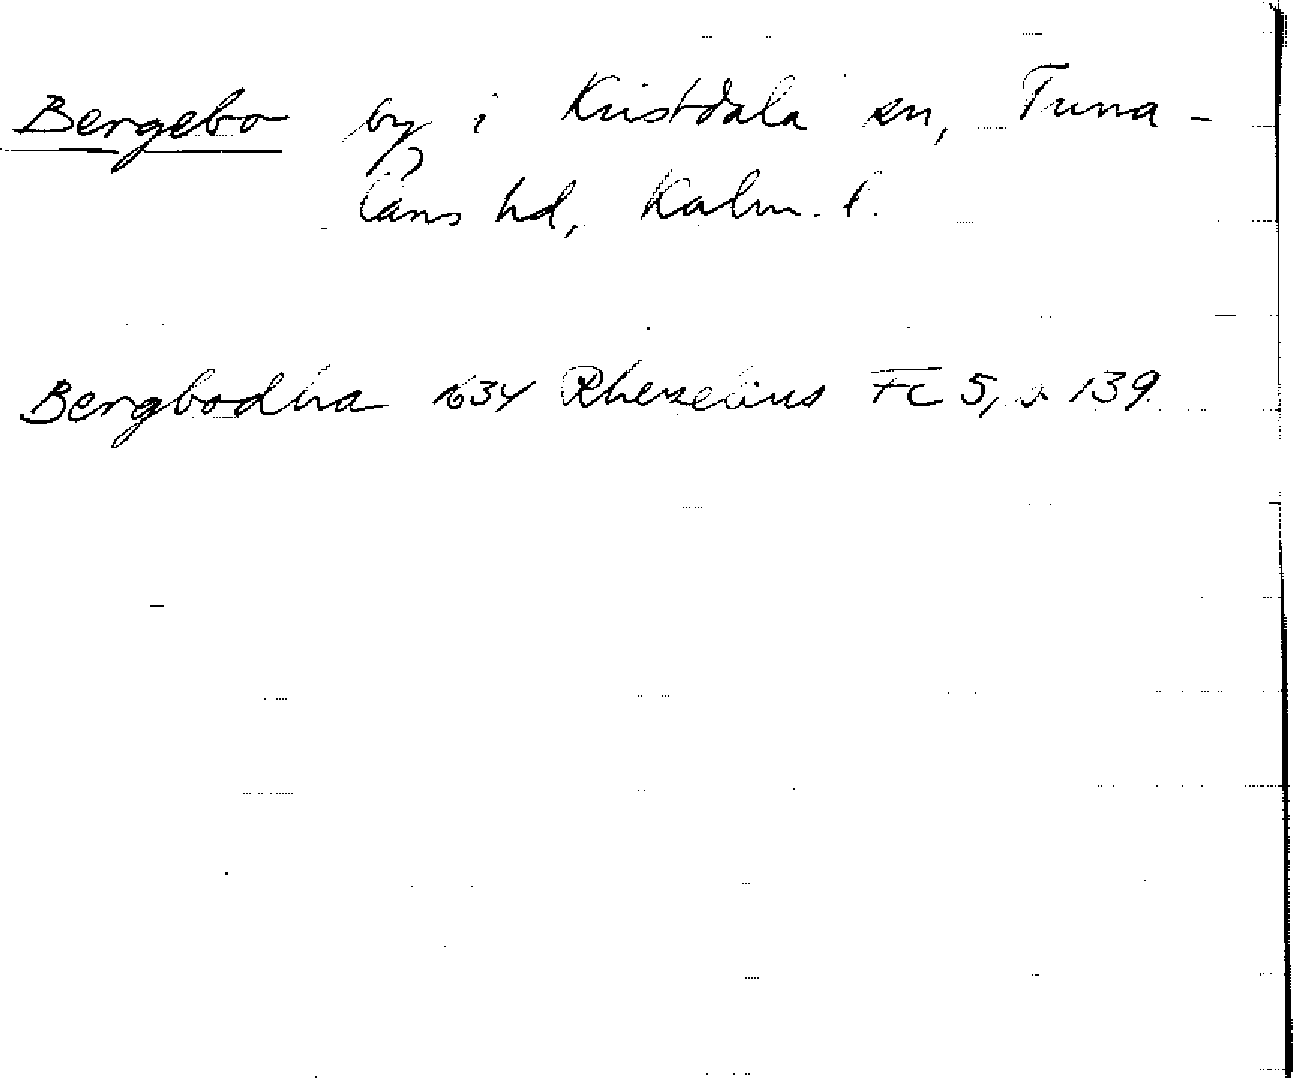 Bergebo by i Kristdala sn, Tuna-
läns hd, Kalm. l.
Bergbodha 1634 Rhezelius Fc 5, s 139